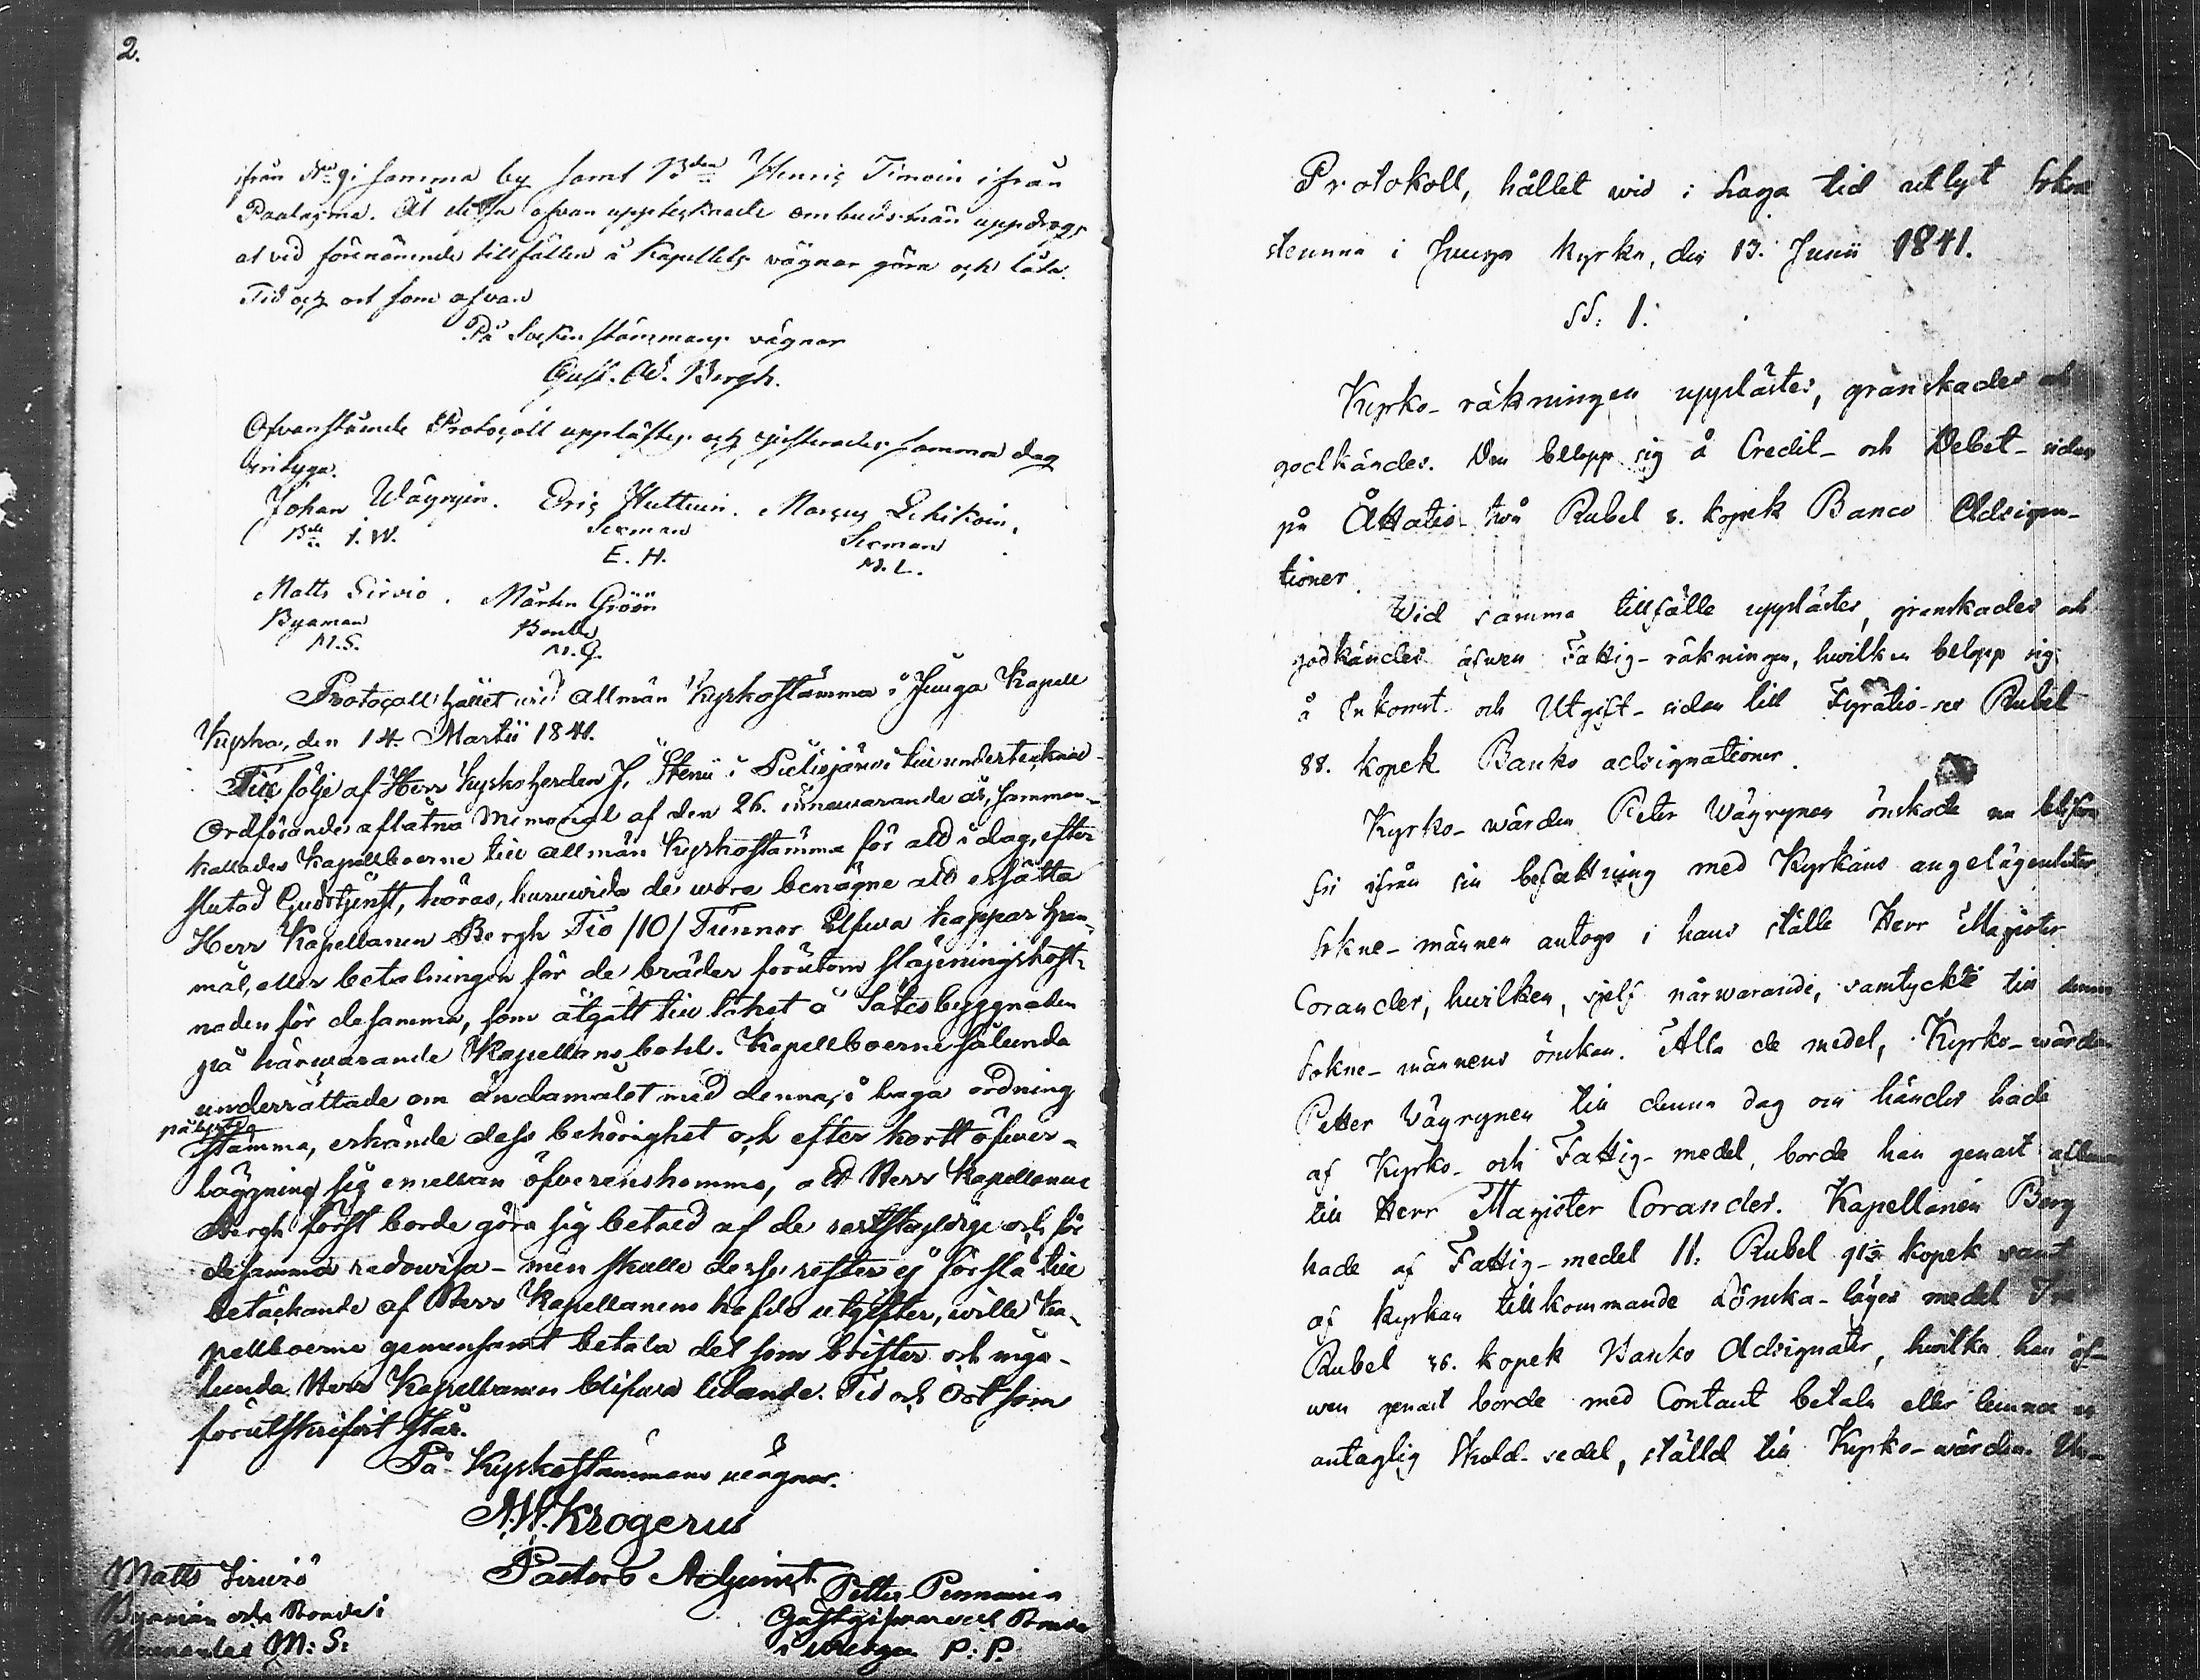 2.
ifrån N:o 9 i samma by samt B:den Henric Timoin ifrån
Paalasma. Åt dessa ofvan upptecknade ombudsmän uppdrogs
at vid förenämnde tillfällen å Kapellets vägnar göra och låta.
Tid och ort som ofvan
På Sockenstämmans vägnar
Gust. Ad. Bergh.
Ofvanstående Protocoll upplästes och justerades samma dag
betyga.
Johan Wäyrynen. Eric Huttuin. Marcus Lehikoin.
Bde J. W. Sexman Sexman
E. H. M. L.
Matts Sirvio. Mårten Gröön
Byaman Bonde
M. S. M. G.
Protocoll hållet wid allmän Kyrkostämma i Juuga Kapell
Kyrka, den 14. Martii 1841.
Till följe af Herr Kyrkoherden J. Stenii i Pielisjärvi till undertecknad
Ordförande aflåtna Memorial af den 26. sammen-
kallades Kapellboerne till allmän Kyrkostämma för att i dag, efter
slutad Gudstjenst, höras, huruwida de wore benägne att ersätta
Herr Kapellanen Bergh Tio /10/ Tunnor Elfwa kappar Span-
mål, eller betalningen för de bräder förutom slägningskost-
naden för desamma, som åtgått till taket å Sätesbyggnaden
på härwarande Kapellans bohl. Kapellboerne sålunda
underrättade om ändamålet med denna, i laga ordning
pålysta
Stämma, erkände dess behörighet och efter kort öfwer-
läggning sig emellan öfverenskommo, att Herr Kapellanen
Bergh först borde göra sig betald af de och för
desamma redowisa - men skulle desse ej förslå till
betäckande af Herr Kapellanens hafde utgifter, wille Ka-
pellboerne gemensamt betala det som brister och
lunda Herr Kapellanen blifwa lidande. Tid och Ort som
förutskrifvit står.
På Kyrkostämmans wägnar.
A. W. Krogerus
Pastors Adjunct
Matts Sirwiö Petter Pennanen
Byaman och Bonde i Gästgifware och Bonde
M: S: i P: P.
Protokoll, hållet wid i Laga tid utlyst Sokne
stemma i Juuga Kyrka, den 13. Junii 1841.
§§: 1.
Kyrko-räkningen upplästes, granskades och
godkändes. Den belopp sig å Credit- och Debet-sidan
på Åttatio-två Rubel 8. kopek Banco Adsigna-
tioner.
Wid samma tillfälle upplästes, granskades och
godkändes äfwen Fattig-räkningen, hwilken belopp sig
å Inkomst- och Utgift-sidan till Fyratio-sex Rubel
88. kopek Banko adsignationer.
Kyrko-wärden Peter Wäyrynen önskade nu blifwa
fri ifrån sin befattning med Kyrkans angelägenheter
Sokne-männen antogo i hans ställe Herr Magister
Corander, hwilken, sjelf närwarande, samtyckte till denna
Sokne-männens önskan. Alla de medel, Kyrko-wärden
Petter Wäyrynen till denna dag om händer hade
af Kyrko- och Fattig-medel, borde han genast aflemna
till Herr Magister Corander. Kapellanen Berg
hade af Fattig-medel 11. Rubel 91½ kopek samt
af kyrkan tillkommande Lönska-läges medel
Rubel 36. kopek Banko Adsignater, hwilka han äf-
wen genast borde med Contant betala eller lemna en
antaglig Skuld-sedel, ställd till Kyrko-wärden.